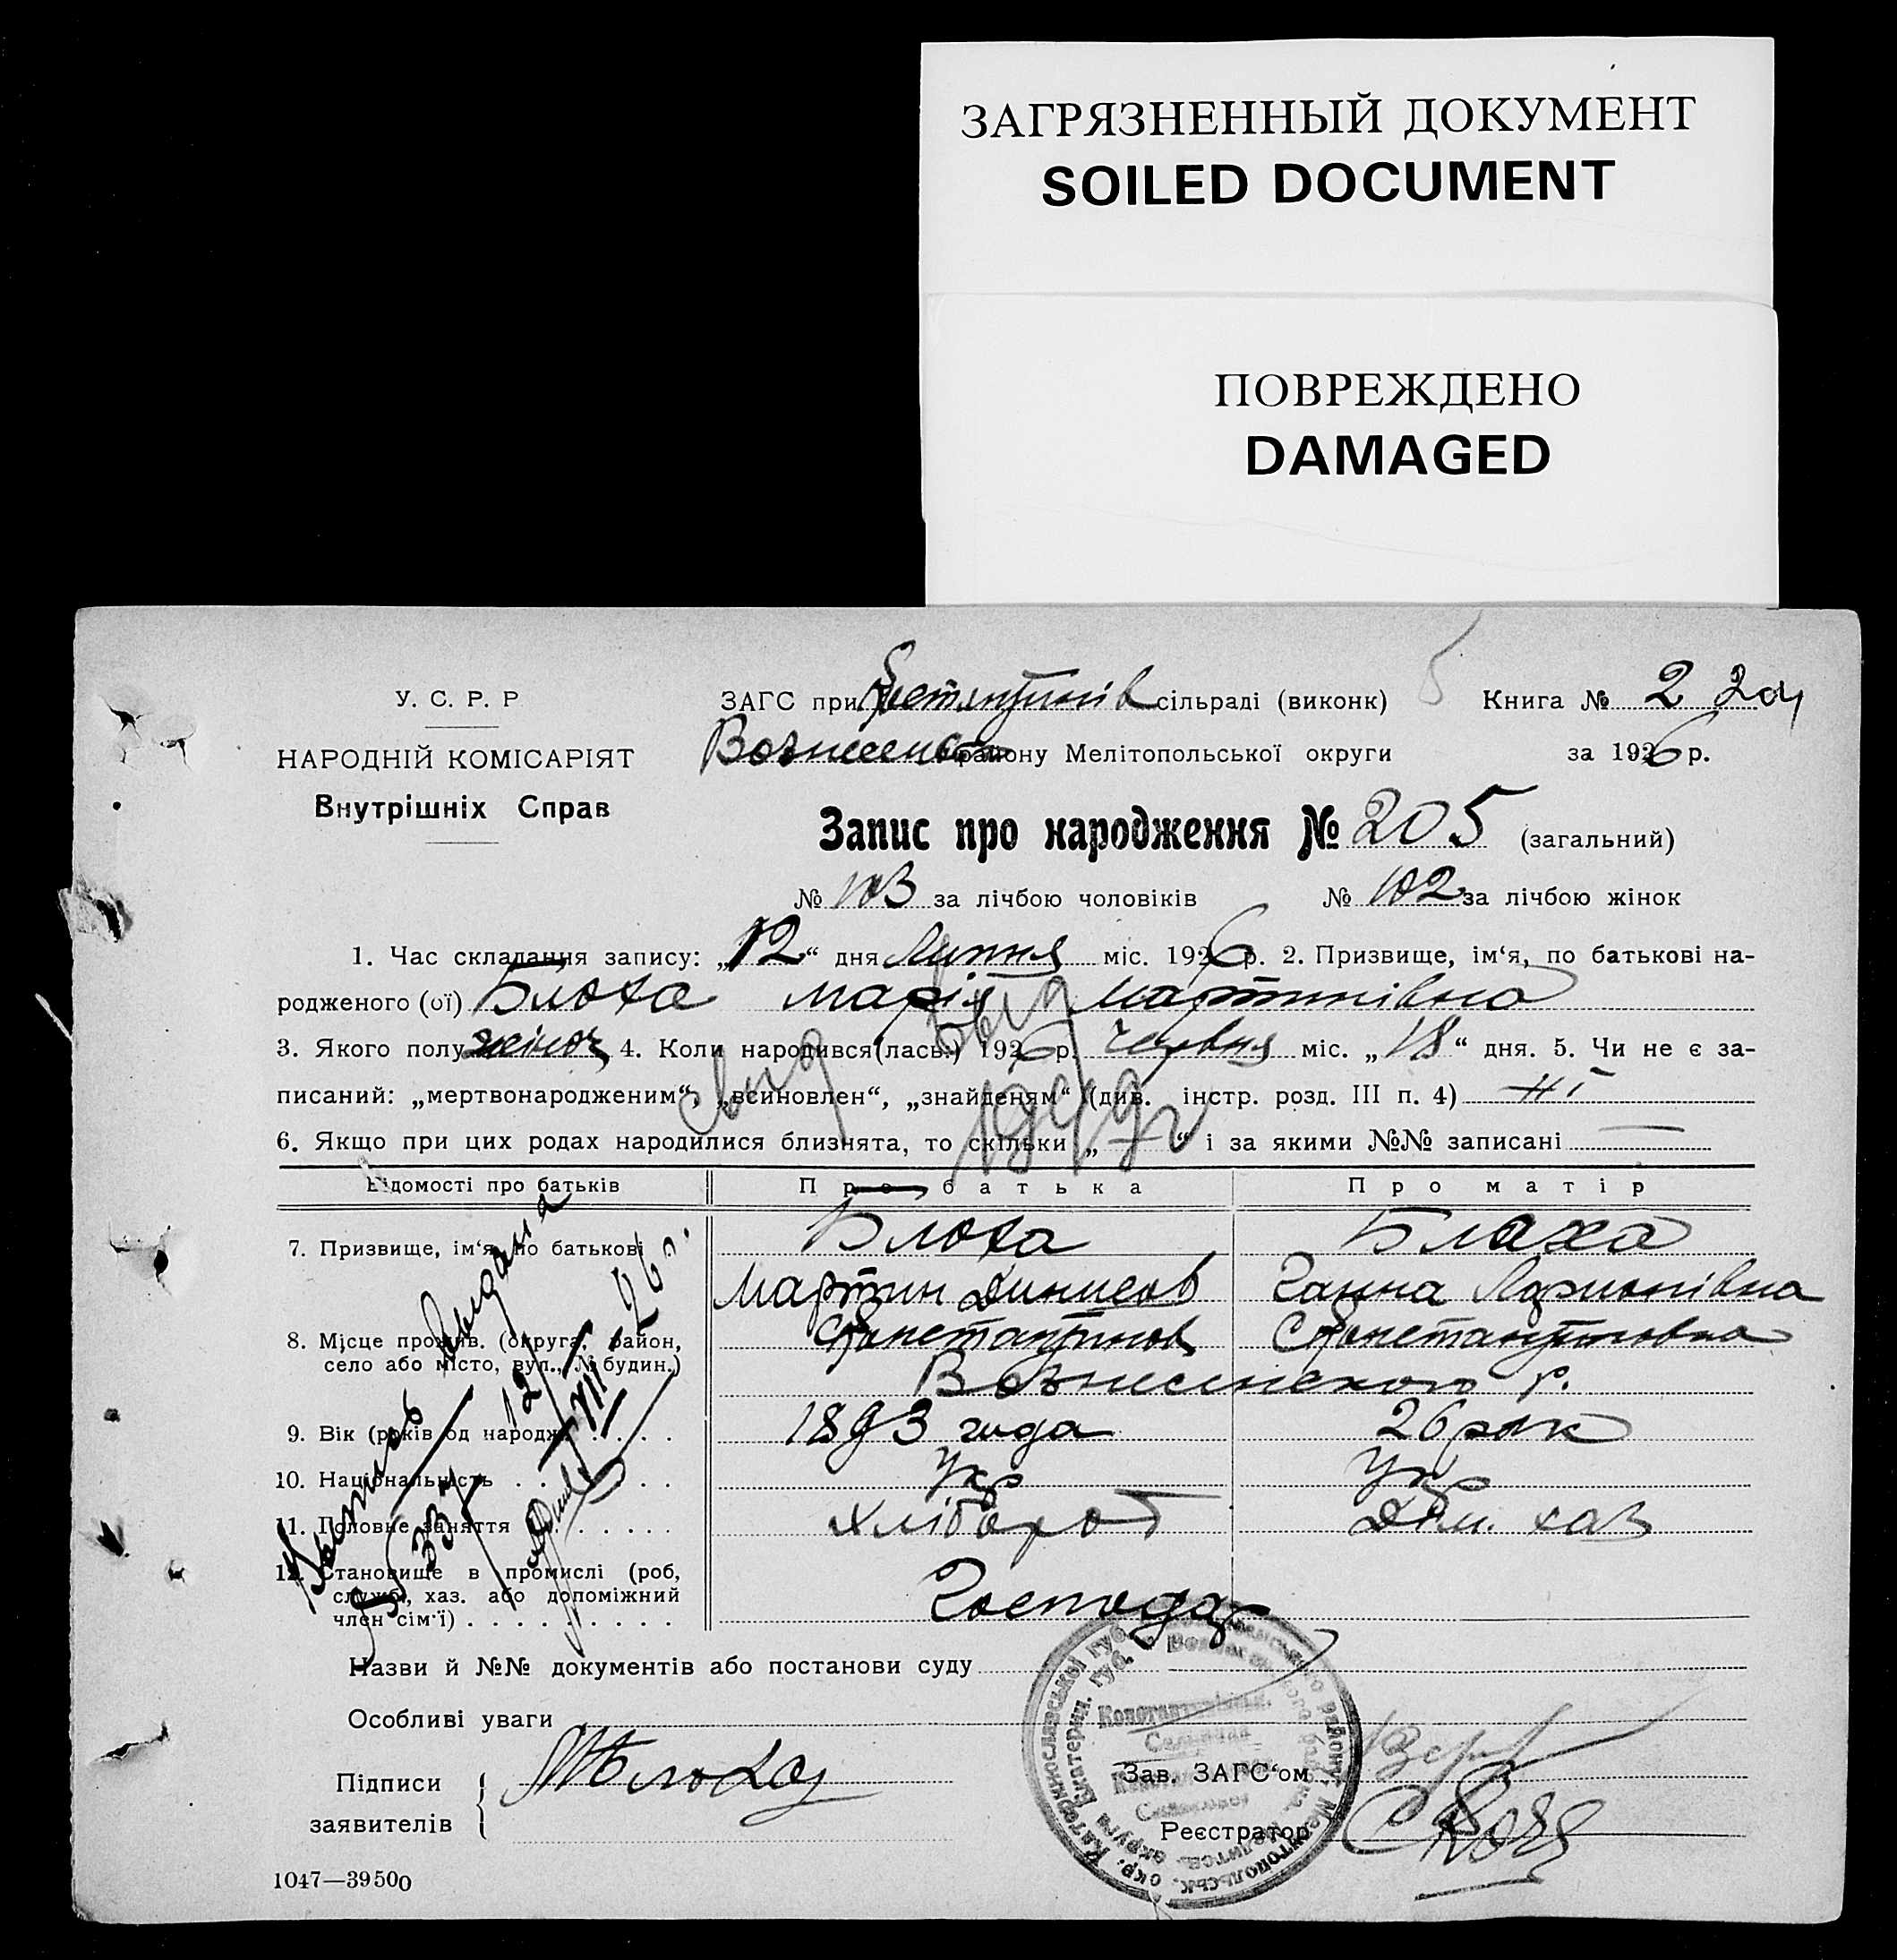 ЗАГРЯЗНЕННЫЙ ДОКУМЕНТ
SOILED DOCUMENT
ПОВРЕЖДЕНО
DAMAGED
У. С. Р. Р
НАРОДНІЙ КОМІСАРІЯТ
Внутрішніх Справ
ЗАГС при сільраді (виконк) Книга № 2
району Мелітопольської округи за 1926 р.
Запис про народження № 205 (загальний)
№ 103 за лічбою чоловіків № 102 за лічбою жінок
1. Час складання запису: „12“ дня Липня міс. 1926 р. 2. Призвище, ім‘я, по батькові на-
родженого (ої) Блоха Марія Мартинівна
3. Якого полу жіноч 4. Коли народився(лась.) 1926 р. червня міс. „18“ дня. 5. Чи не є за-
писаний: „мертвонародженим“, „всиновлен“, „знайденям“ (див. інстр. розд. III п. 4) ні
6. Якщо при цих родах народилися близнята, то скільки „—“ і за якими №№ записані —
1949 г
Відомості про батьків Про батька Про матір
7. Призвище, ім‘я, по батькові Блоха Блаха
Мартин Динисов Ганна Ларионівна
8. Місце прожив. (округа, район, село або місто, вул., № будин.) Константинов Константиновна
Вознесинского р.
9. Вік (років од народж.) 1893 года 26 рок
10. Національність Укр Укр
11. Головне заняття Хлібороб Дом. хаз
12. Становище в промислі (роб, службі, хаз. або допоміжний член сім‘ї) Господар
Выпись выдана
№ 337
12/VII-26 г.
Назви й №№ документів або постанови суду
Особливі уваги
Підписи заявителів { МБлоха
Зав. ЗАГС‘ом
Реєстратор
1047—39500